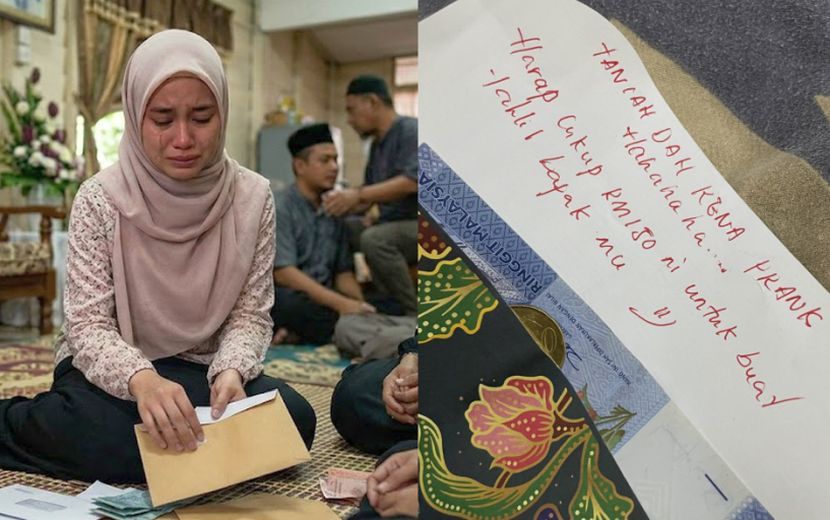 TANIAH DAH KENA PRANK
Hahahaha....
Harap cukup RM1.50 ni untuk buat
tahlil bapak mu =)
RINGGIT MALAYSIA